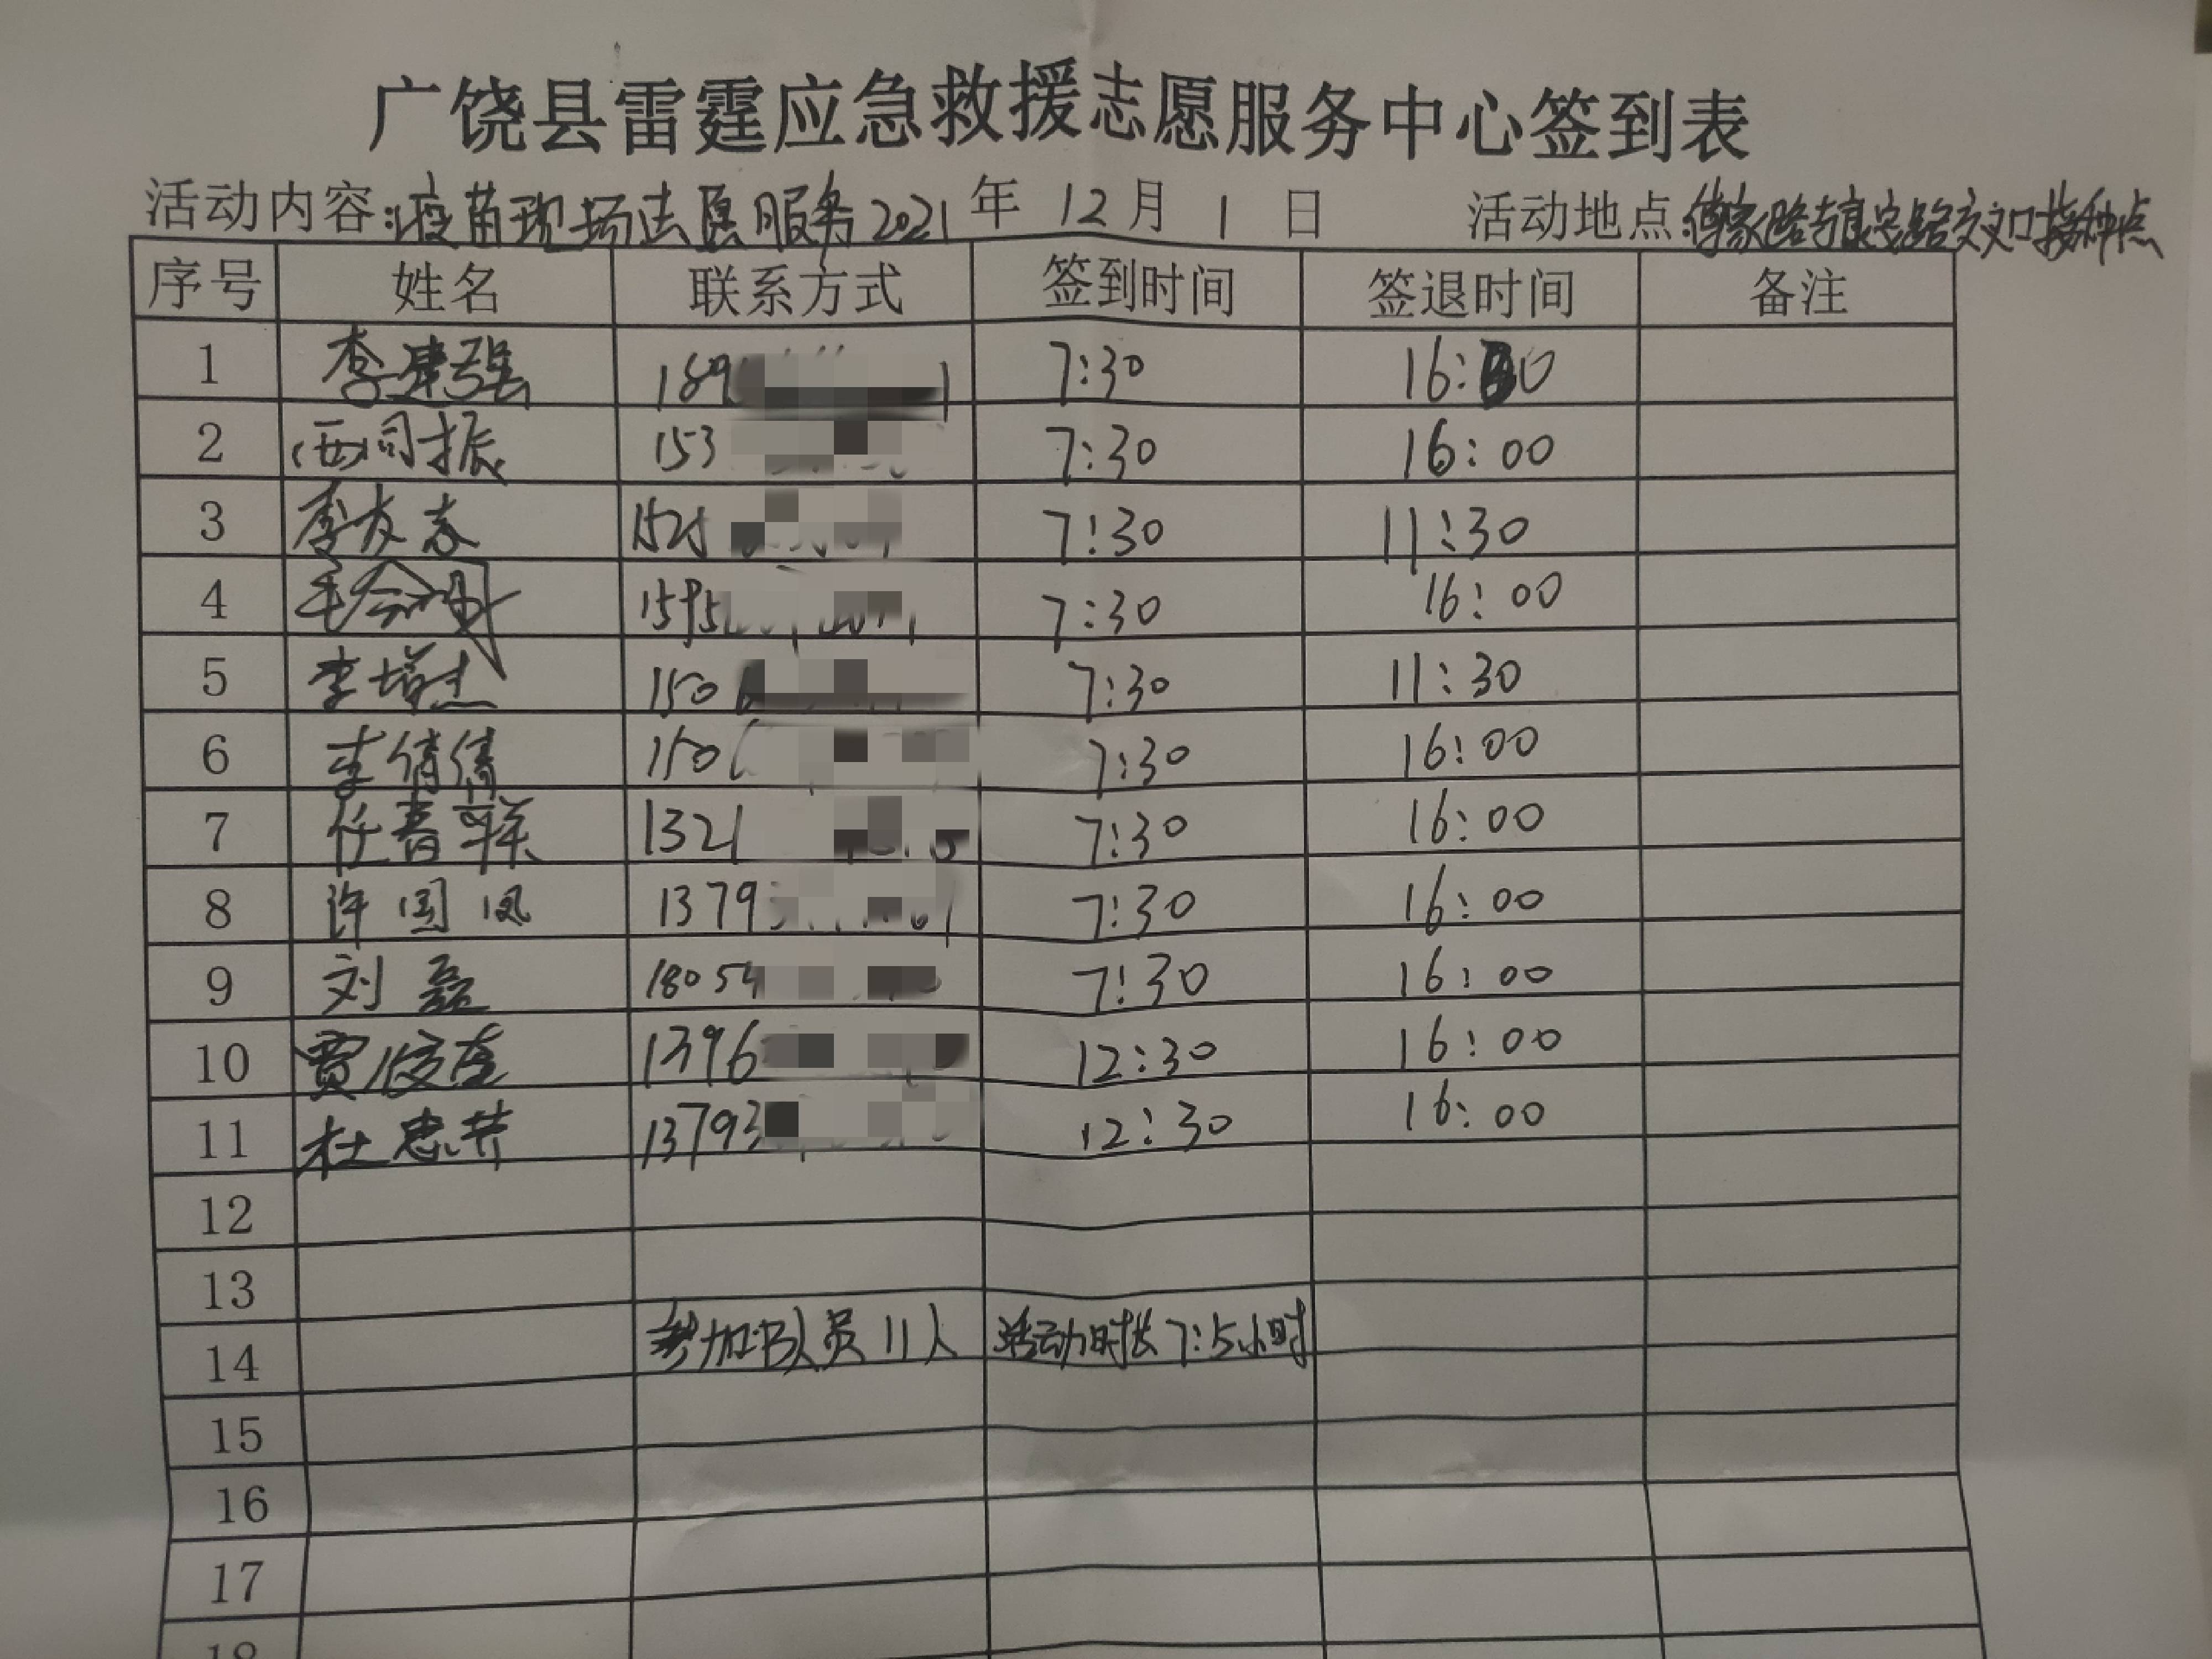 广饶县雷霆应急救援志愿服务中心签到表
活动内容:疫苗现场志愿服务2021年12月1日 活动地点:傅家路与康安路交叉口接种点
序号 姓名 联系方式 签到时间 签退时间 备注
1 李建强 189 1 7:30 16:
2 西同振 153 7:30 16:00
3 李友志 1525 7:30 11:30
4 毛 1595 7:30 16:00
5 李增杰 150 7:30 11:30
6 李倩倩 150 7:30 16:00
7 任春祥 1321 7:30 16:00
8 许国凤 1379 7:30 16:00
9 刘磊 18054 7:30 16:00
10 贾俊 1396 12:30 16:00
11 杜忠芳 13793 12:30 16:00
12
13
14 参加队员11人 活动时长7:5小时
15
16
17
18